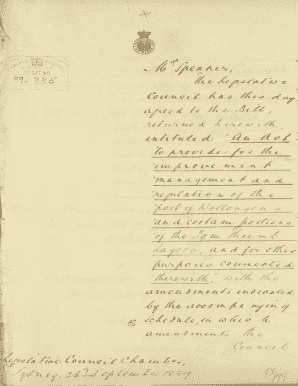 Mr Speaker,
The Legislative
Council has this day
agreed to the Bill,
returned herewith,
intituled "An Act
to provide for the
improvement
management and
regulation of the
port of Wollongong
and certain portions
of the Tom Thumb
Lagoon, and for other
purposes connected
therewith", with the
amendments indicated
by the accompanying
schedule, in which
amendments the
Council
Legislative Council Chamber,
Sydney, 26th September 1889